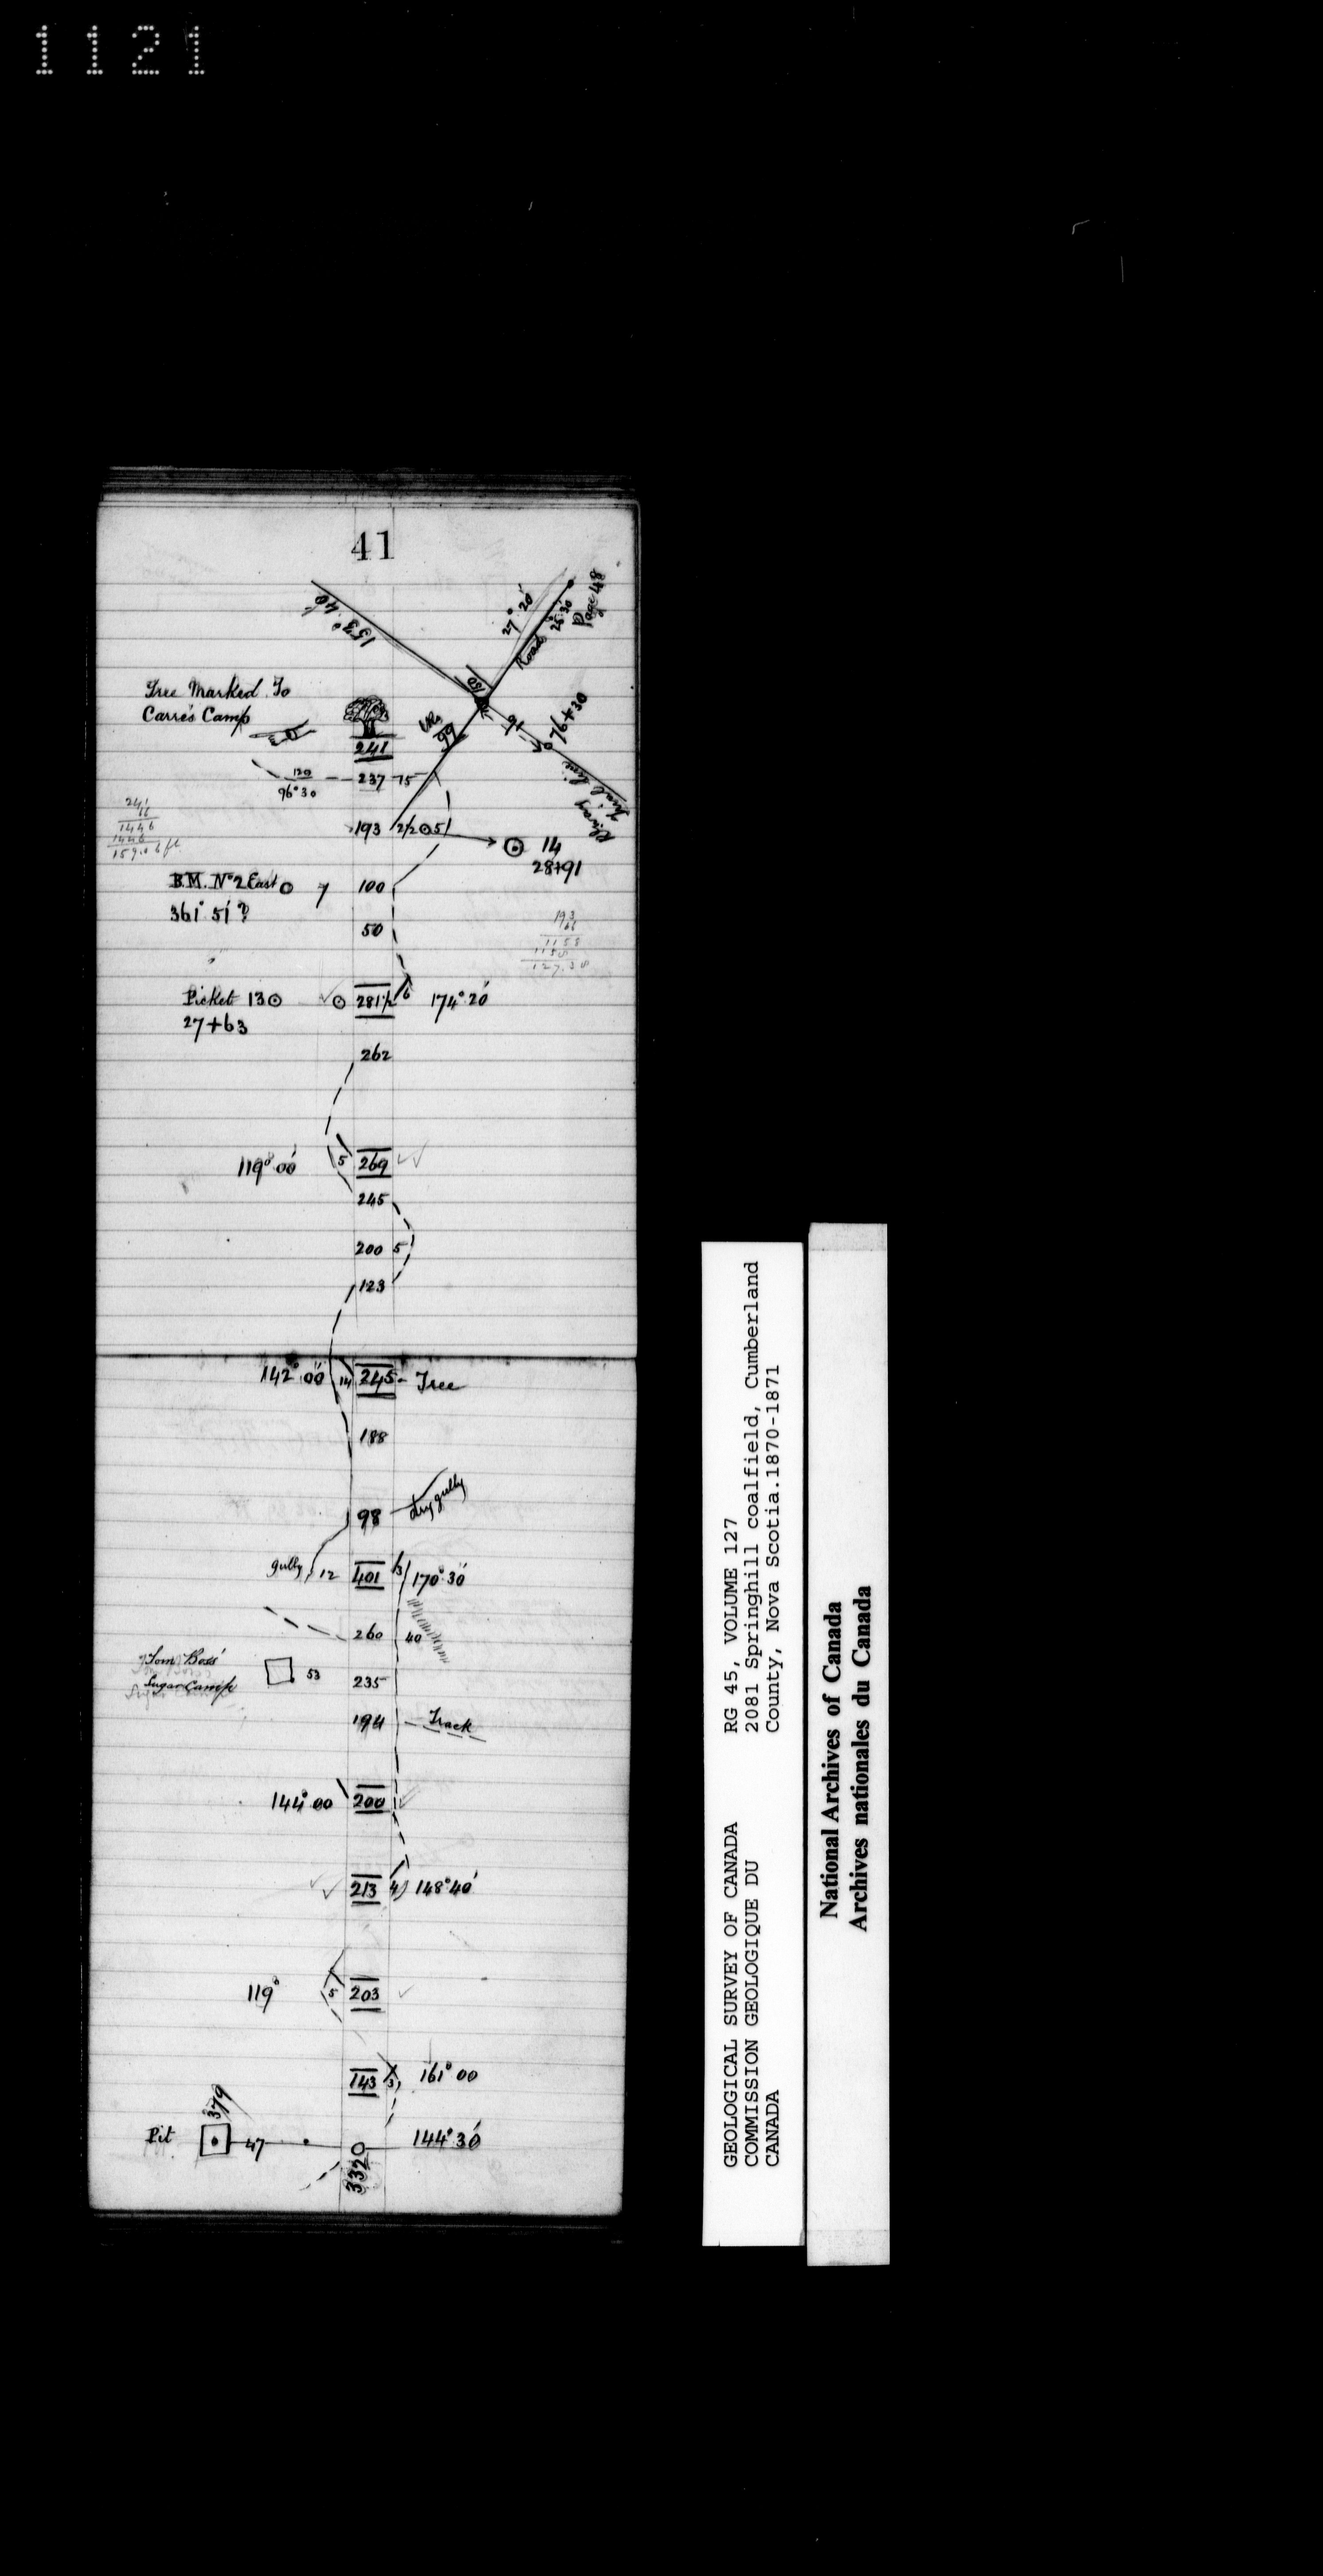 1121
41
153° 40'
27° 20'
Road 26° 30
Page 48
150
Tree Marked To
Carre's Camp
99
76+30
241
120
237 75
96° 30
Railway
Trial line
241
66
1446
1446
159.06 ft
193 2/2 ⊙ 51
14
28+91
B.M. N° 2 East ⊙ 7 100
361° 51' ?
50
193
66
1158
1158
127.38
Picket 13 ⊙ ⊙ 281½ 6 174° 20'
27+63
262
119° 00' 5 269
245
200 5
123
142° 00' 14 245 - Tree
188
98 dry gully
gully 12 401 13 170° 30'
260 40
Tom Boss'
Sugar Camp
53 235
194 Track
144° 00 200
213 4 148° 40'
119° 5 203
143 3 161° 00
379
Pit 47 144° 30'
332
GEOLOGICAL SURVEY OF CANADA
COMMISSION GEOLOGIQUE DU
CANADA
RG 45, VOLUME 127
2081 Springhill coalfield, Cumberland
County, Nova Scotia.1870-1871
National Archives of Canada
Archives nationales du Canada